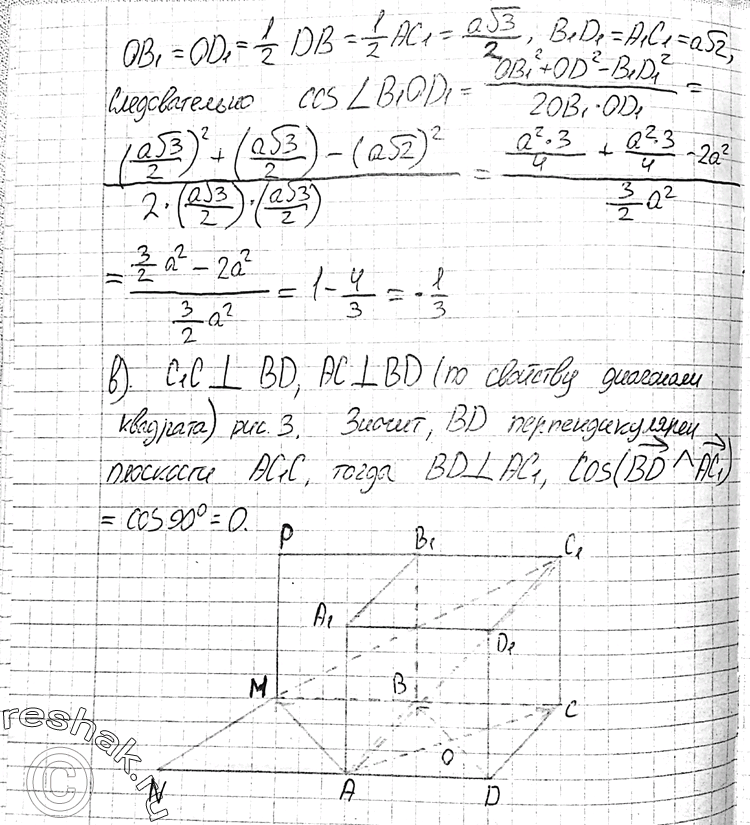 OB₁ = OD₁ = 1/2 DB = 1/2 AC₁ = a√3/2, B₁D₁ = A₁C₁ = a√2,
Следовательно cos∠B₁OD₁ = (OB₁² + OD² - B₁D₁²)/(2OB₁·OD₁) =
((a√3/2)² + (a√3/2) - (a√2)²)/(2·(a√3/2)·(a√3/2)) = (a²·3/4 + a²·3/4 - 2a²)/(3/2 a²)
= (3/2 a² - 2a²)/(3/2 a²) = 1 - 4/3 = -1/3
в). C₁C ⊥ BD, AC ⊥ BD (по свойству диагонали
квадрата) рис. 3. Значит, BD перпендикулярен
плоскости AC₁C, тогда BD ⊥ AC₁, Cos(BD ^ AC₁)
= cos 90° = 0.
P B₁ C₁
A₁ D₁
M B C
O
N A D
reshak.ru
©